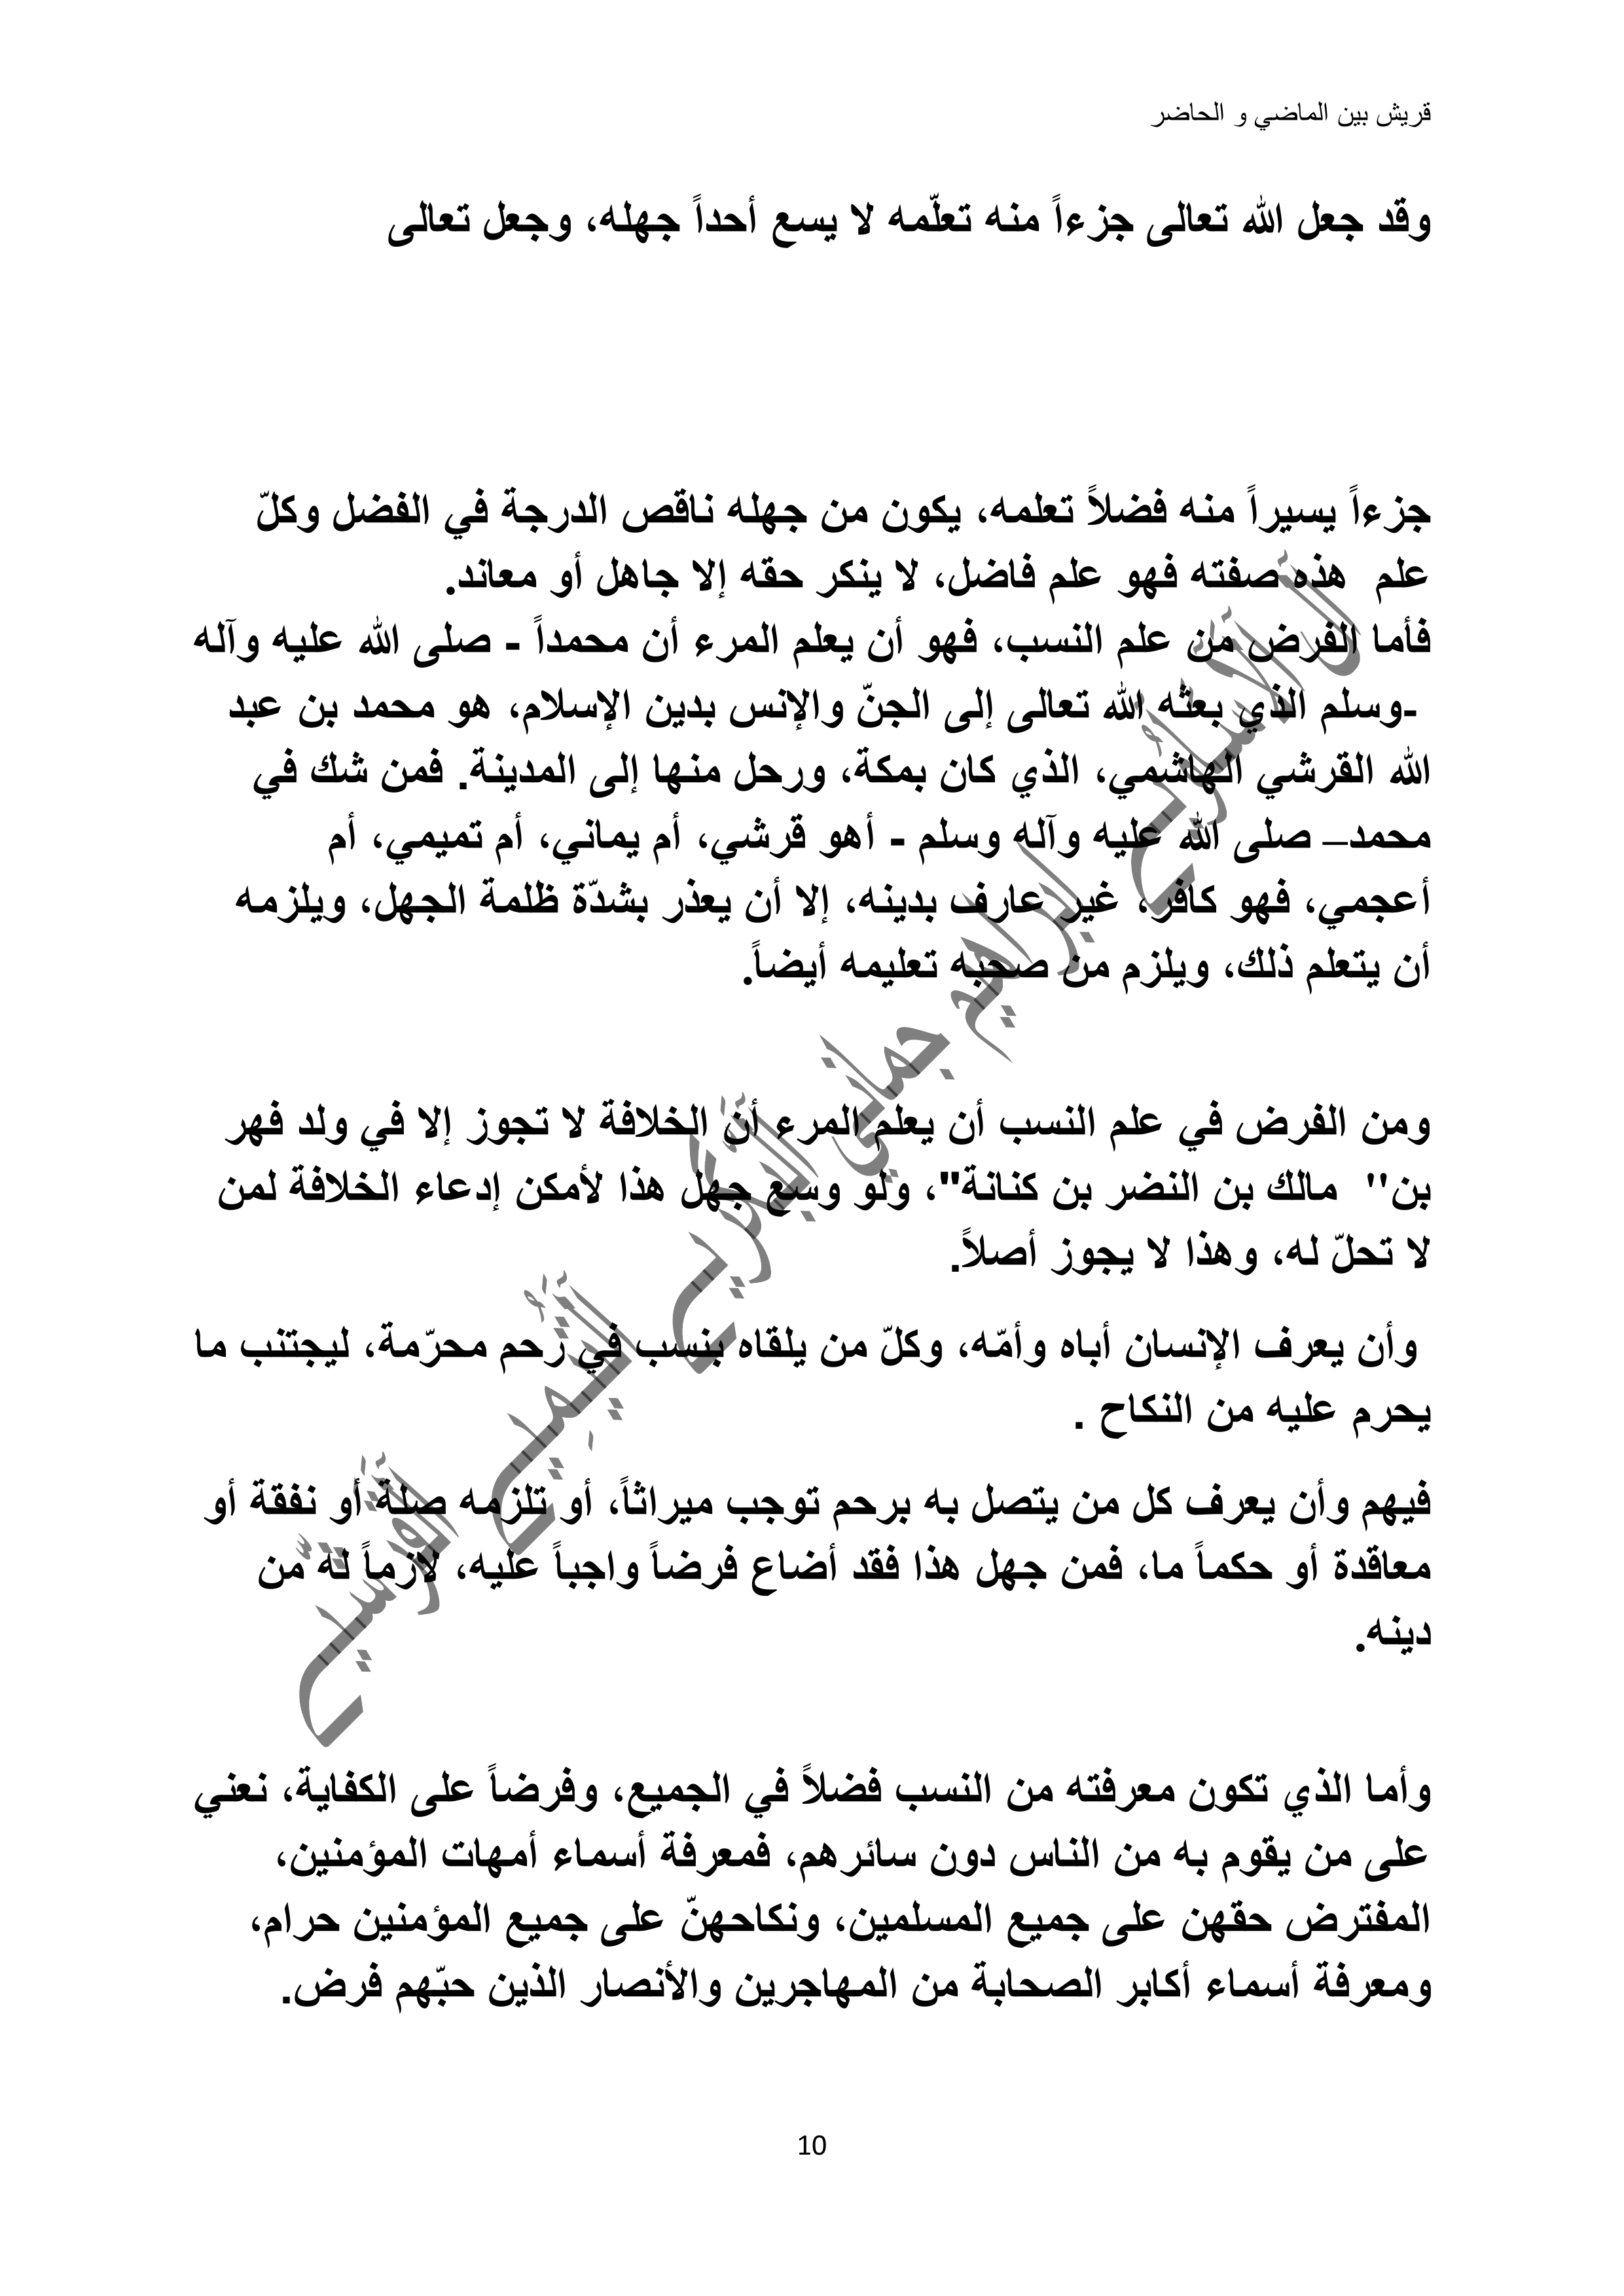 قريش بين الماضي و الحاضر
وقد جعل الله تعالى جزءاً منه تعلّمه لا يسع أحداً جهله، وجعل تعالى
جزءاً يسيراً منه فضلاً تعلمه، يكون من جهله ناقص الدرجة في الفضل وكلّ
علم هذه صفته فهو علم فاضل، لا ينكر حقه إلا جاهل أو معاند.
فأما الفرض من علم النسب، فهو أن يعلم المرء أن محمداً - صلى الله عليه وآله
-وسلم الذي بعثه الله تعالى إلى الجنّ والإنس بدين الإسلام، هو محمد بن عبد
الله القرشي الهاشمي، الذي كان بمكة، ورحل منها إلى المدينة. فمن شك في
محمد– صلى الله عليه وآله وسلم - أهو قرشي، أم يماني، أم تميمي، أم
أعجمي، فهو كافر، غير عارف بدينه، إلا أن يعذر بشدّة ظلمة الجهل، ويلزمه
أن يتعلم ذلك، ويلزم من صحبه تعليمه أيضاً.
ومن الفرض في علم النسب أن يعلم المرء أن الخلافة لا تجوز إلا في ولد فهر
بن" مالك بن النضر بن كنانة"، ولو وسع جهل هذا لأمكن إدعاء الخلافة لمن
لا تحلّ له، وهذا لا يجوز أصلاً.
وأن يعرف الإنسان أباه وأمّه، وكلّ من يلقاه بنسب في رحم محرّمة، ليجتنب ما
يحرم عليه من النكاح .
فيهم وأن يعرف كل من يتصل به برحم توجب ميراثاً، أو تلزمه صلة أو نفقة أو
معاقدة أو حكماً ما، فمن جهل هذا فقد أضاع فرضاً واجباً عليه، لازماً له من
دينه.
وأما الذي تكون معرفته من النسب فضلاً في الجميع، وفرضاً على الكفاية، نعني
على من يقوم به من الناس دون سائرهم، فمعرفة أسماء أمهات المؤمنين،
المفترض حقهن على جميع المسلمين، ونكاحهنّ على جميع المؤمنين حرام،
ومعرفة أسماء أكابر الصحابة من المهاجرين والأنصار الذين حبّهم فرض.
10